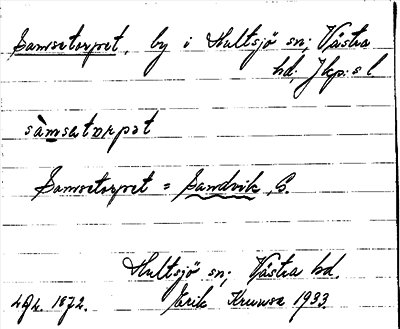 Samsetorpet, by i Hultsjö sn; Västra
hd. Jkp:s l
sàmsatorpət
Samsetorpet = Sandvik, S.
Hultsjö sn; Västra hd.
1872. Erik Kruuse 1933.